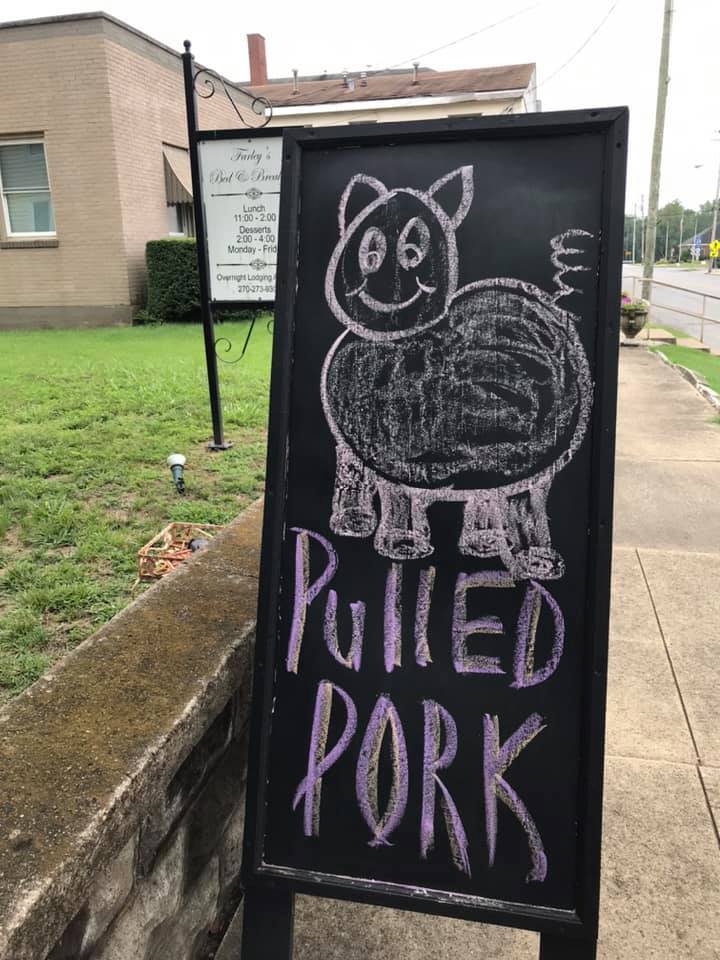 Farley's
Bed &
Lunch
11:00 - 2:00
Desserts
2:00 - 4:00
Monday -
Overnight Lodging
PullED
PORK